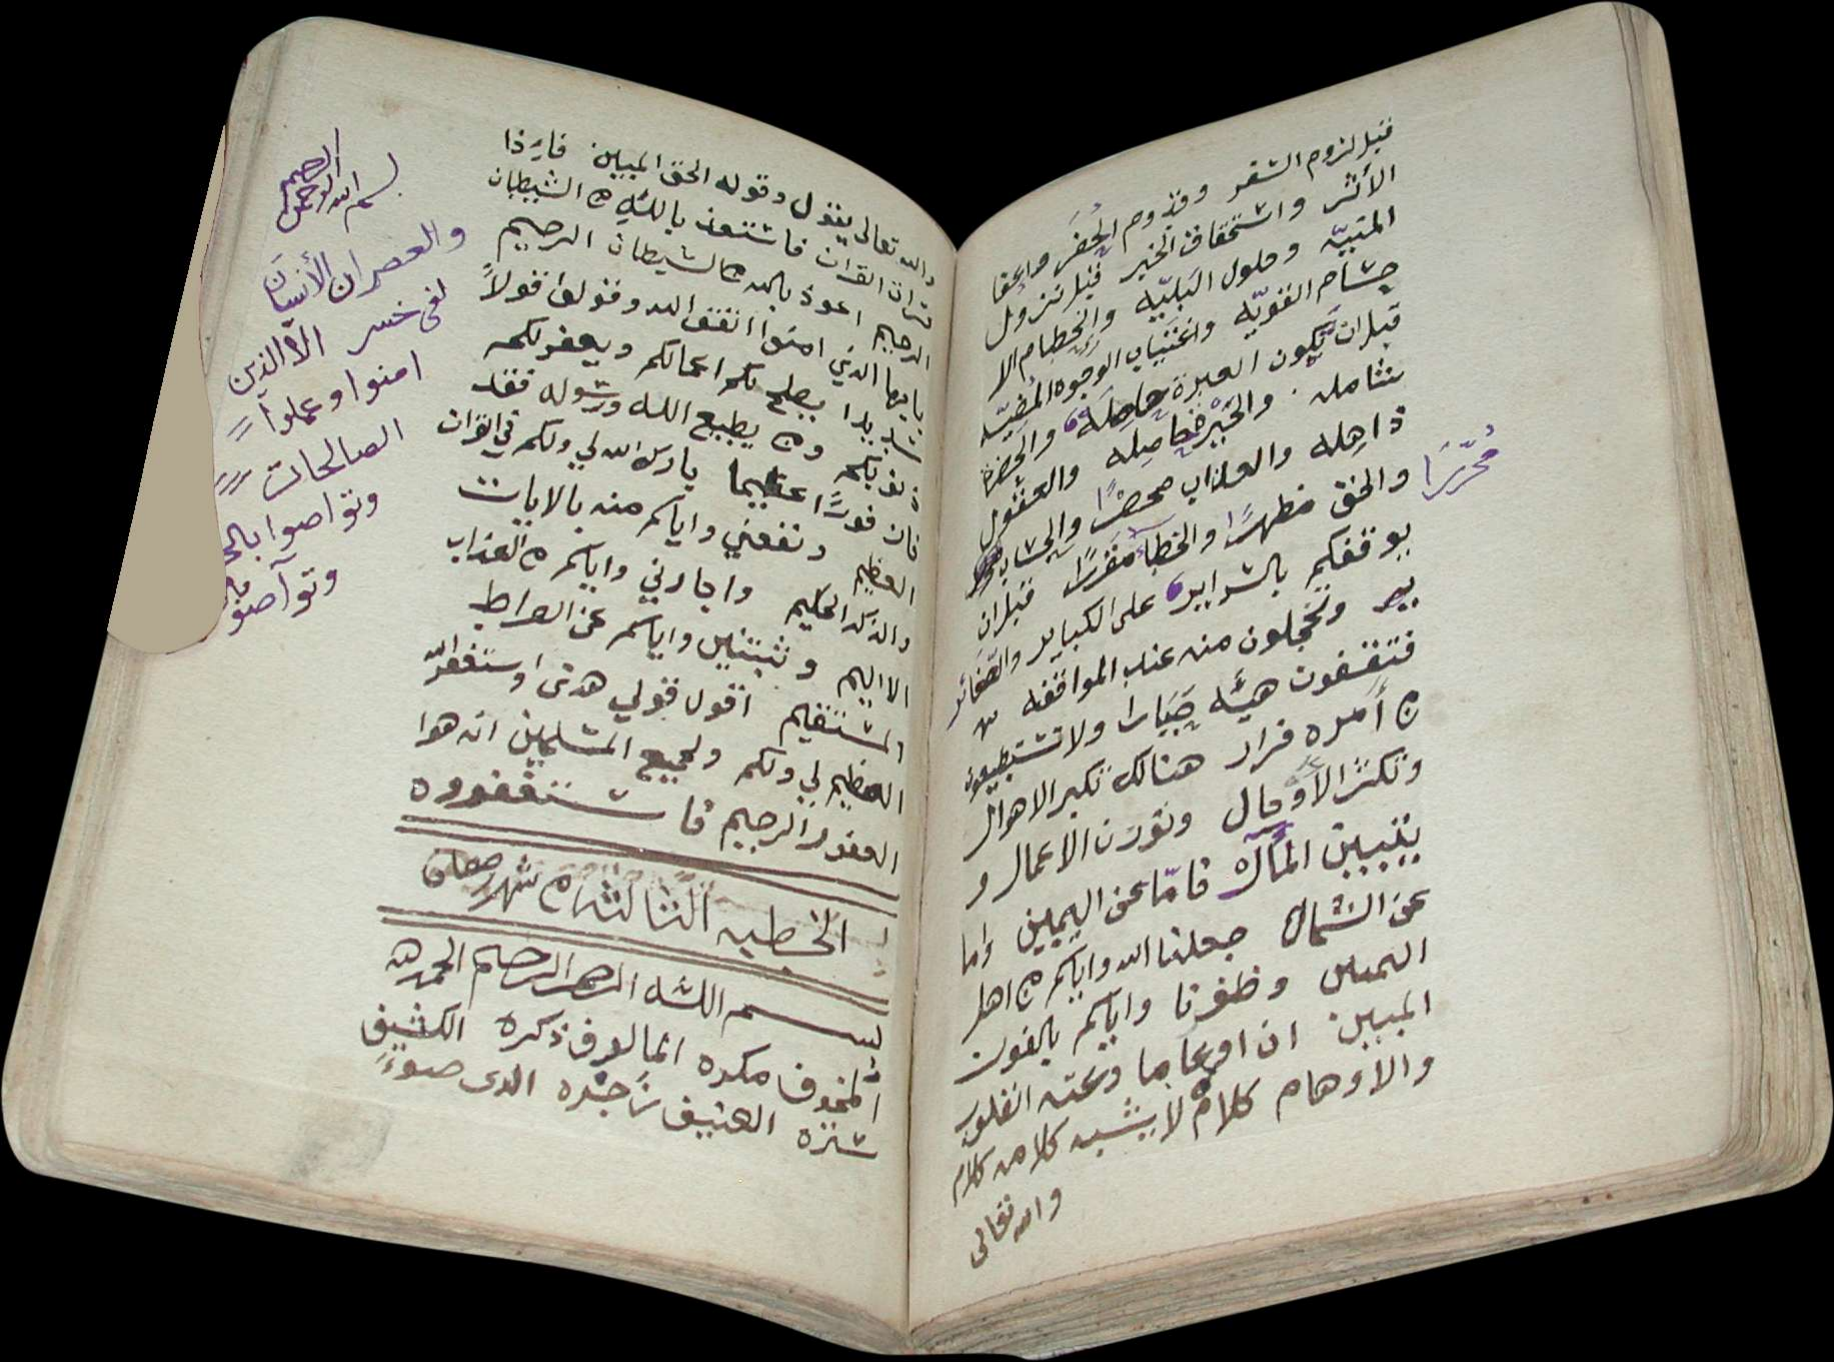 قبل لزوم السفر وقدوم الحفر
الأثر واستحقاق الخبر قبل نزول
المنيّه وحلول البليّه
القويّه واغتياب الوجوه المضيّه
قبل ان تكون العبرة حاصله
والخير فاصله والعقول
ذاهله والعذاب محضرًا والحساب
محرّرًا
والحق مظهرًا والخطا مقررًا قبل ان
يوقفكم بالسراير على الكباير والصغائر
وتخجلون منه عند المواقفه
فتقفون هيئه ولا تستطيعون
من أمره فرار هنالك تكبر الاهوال
وتكثر الأوجال وتوزن الاعمال و
يتبين المآل فامّا عن اليمين واما
عن الشمال جعلنا الله واياكم من اهل
اليمين وظفرنا واياكم بالفوز
المبين ان اوعا ما وعته القلوب
والاوهام كلامٌ لا يشبه كلامه كلام
والله تعالى
والله تعالى يقول وقوله الحق المبين فاذا
قرات القران فاستعذ بالله من الشيطان
الرجيم اعوذ بالله من الشيطان الرجيم
يا ايها الذين امنوا اتقوا الله وقولوا قولاً
سديدا يصلح لكم اعمالكم ويغفر لكم
ذنوبكم ومن يطيع الله ورسوله فقد
فاز فوزًا عظيما بارك الله لي ولكم في القران
العظيم ونفعني واياكم منه بالايات
والذكر الحكيم واجارني واياكم من العذاب
الاليم وثبتني واياكم على الصراط
المستقيم اقول قولي هذى واستغفر الله
العظيم لي ولكم ولجميع المسلمين انه هوا
الغفور الرحيم فاستغفروه
الخطبه الثالثه من شهر رمضان
بسم الله الرحمن الرحيم الحمد لله
المخوف مكره المالوف ذكره الكثيف
ستره العنيف زجره الذى ضوء
بسم الله الرحمن الرحيم
والعصر ان الأنسان
لفى خسر الا الذين
امنوا وعملوا
الصالحات
وتواصوا بالح
وتواصو با